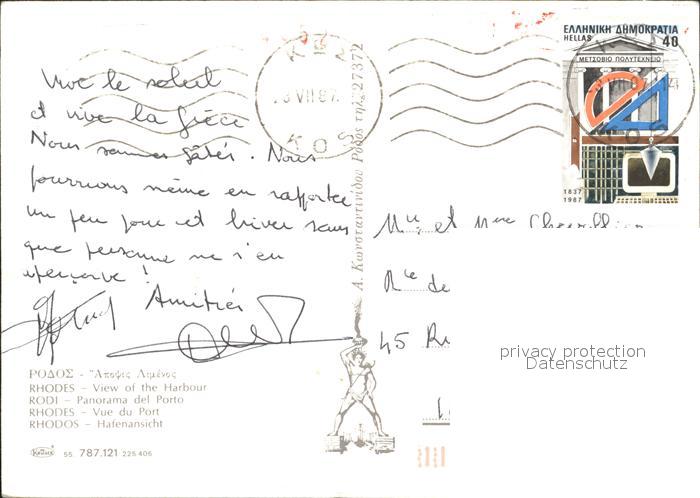 Vive le soleil
et vive la Grèce
Nous sommes gâtés. Nous
pourrions même en rapporter
un peu pour cet hiver sans
que personne ne s'en
aperçoive !
Amitiés
ΡΟΔΟΣ - Ἄποψις Λιμένος
RHODES - View of the Harbour
RODI - Panorama del Porto
RHODES - Vue du Port
RHODOS - Hafenansicht
KRÜGER 55. 787.121 225 406
Δ. Κωνσταντινίδου Ρόδος τηλ. 27372
ΚΩΣ
3 VII 87
KOS
ΕΛΛΗΝΙΚΗ ΔΗΜΟΚΡΑΤΙΑ
HELLAS 40
ΜΕΤΣΟΒΙΟ ΠΟΛΥΤΕΧΝΕΙΟ
3 VII 87 14
1837
1987
Mr et Mme
Rte de
45
privacy protection
Datenschutz